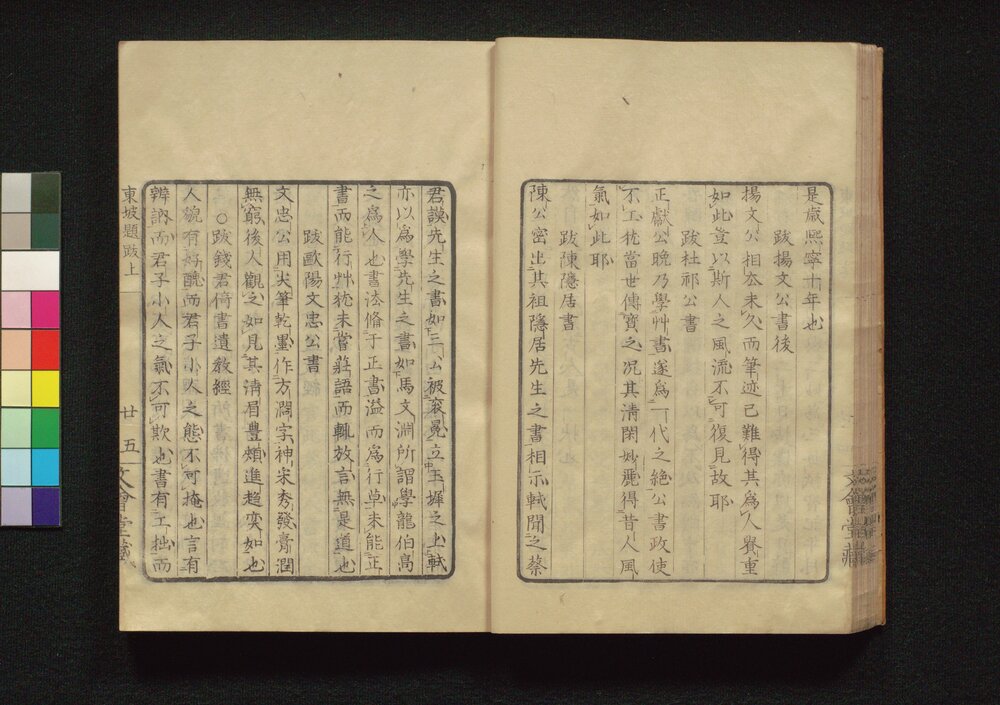 是歲熙寧十年也
跋揚文公書後
揚文公相去未久而筆迹已難得其爲人貴重
如此豈以斯人之風流不可復見故耶
跋杜祁公書
正獻公晚乃學艸書遂爲一代之絶公書政使
不工犹當世傳寳之况其清閑妙麗得昔人風
氣如此耶
跋陳隱居書
陳公密出其祖隱居先生之書相示軾聞之蔡
君謨先生之書如三公被袞冕立玉墀之上軾
亦以爲學先生之書如馬文淵所謂學龍伯高
之爲人也書法脩于正書溢而爲行草未能正
書而能行艸犹未甞莊語而輒放言無是道也
跋歐陽文忠公書
文忠公用尖筆乾墨作方濶字神米秀發膏潤
無窮後人觀之如見其清眉豊頰進趨奕如也
○跋錢君倚書遺教經
人貌有好醜而君子小人之態不可掩也言有
辨訥而君子小人之氣不可欺也書有工拙而
東坡題跋上
廿五
文會堂藏